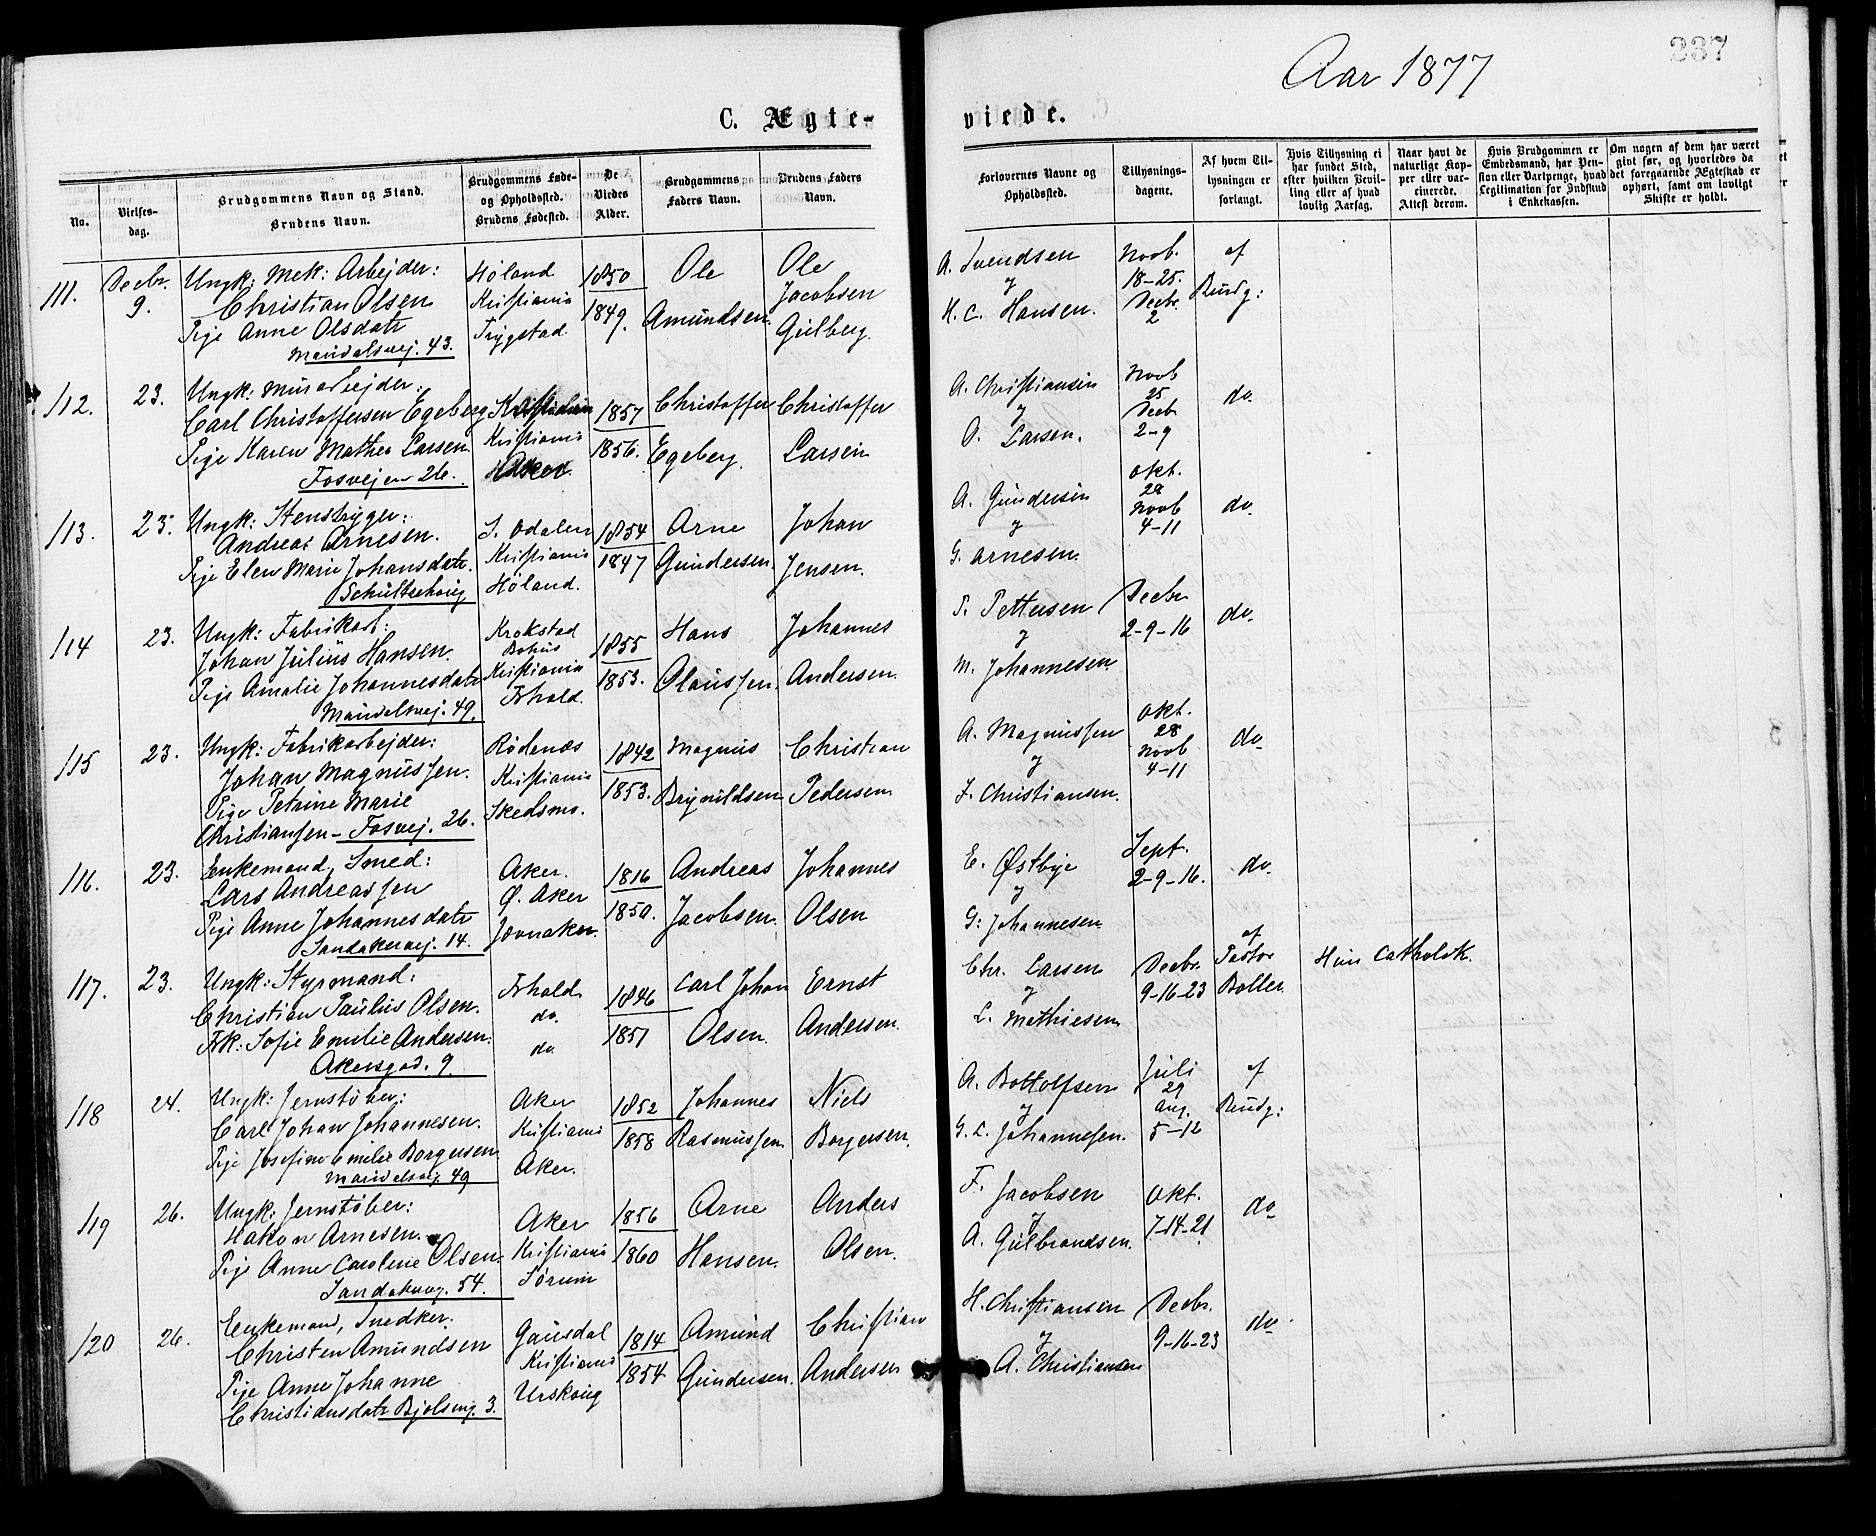 237
Aar 1877
C. Ægte-
viede.
No.
Vielses-
dag.
Brudgommens Navn og Stand.
Brudens Navn.
Brudgommens Føde-
og Opholdssted.
Brudens Fødested.
De
Viedes
Alder.
Brudgommens
Faders Navn.
Brudens Faders
Navn.
Forlovernes Navne og
Opholdssted.
Tillysnings-
dagene.
Af hvem Til-
lysningen er
forlangt.
Hvis Tillysning ei
har fundet Sted,
efter hvilken Bevil-
ling eller af hvad
lovlig Aarsag.
Naar havt de
naturlige Kop-
per eller vac-
cinerede.
Attest derom.
Hvis Brudgommen er
Embedsmand, har Pen-
sion eller Vartpenge, hvad
Legitimation for Indskud
i Enkekassen.
Om nogen af dem har været
givt før, og hvorledes da
det foregaaende Ægteskab er
ophørt, samt om lovligt
Skifte er holdt.
111.
Decbr.
9.
Ungk: Mek: Arbejder:
Christian Olsen
Pige Anne Olsdatr
Maridalsvej. 43.
Høland
Kristiania
Trygstad
1850
1849.
Ole
Amundsen.
Ole
Jacobsen
Gulberg.
A. Svendsen
y
H. C. Hansen.
Novb.
18-25.
Decbr.
2
af
Brudg:
112.
23.
Ungk: Murarbejder:
Carl Christoffersen Egeberg
Pige Karen Mathea Larsen
Fosvejen 26.
Kristiania
Kristiania
Aker
1857
1856.
Christoffer
Egeberg.
Christoffer
Larsen
A. Christiansen
y
O. Larsen.
Novb
25
Decbr
2-9
do.
113.
23.
Ungk: Stenbryger:
Andreas Arnesen.
Pige Elen Marie Johansdatr.
Schultzehaug
S. Odalen
Kristiania
Høland.
1854
1847
Arne
Gundersen.
Johan
Jensen.
A. Gundersen
y
G. Arnesen.
Okt.
29
Novb
4-11
do.
114
23.
Ungk: Fabrikarb:
Johan Julius Hansen.
Pige Amalie Johannesdatr
Maridalsvej. 49.
Krokstad
Bohus
Kristiania
Frhald.
1855
1853.
Hans
Olaussen.
Johannes
Andersen.
P. Pettersen
y
M. Johannesen.
Decbr
2-9-16
do.
115
23.
Ungk: Fabrikarbejder:
Johan Magnussen.
Pige Petrine Marie
Christiansen - Fosvej. 26.
Rødenæs
Kristiania
Skedsmo.
1842
1853.
Magnus
Brynildsen
Christian
Pedersen
A. Magnussen
y
J. Christiansen.
Okt.
28
Novb
4-11
do
116.
23.
Enkemand, Smed:
Lars Andreassen
Pige Anne Johannesdatr
Sandakervej. 14.
Aker.
Ø. Aker
Jevnaker.
1816
1850.
Andreas
Jacobsen.
Johannes
Olsen
E. Østbye
y
G. Johannesen.
Sept.
2-9-16.
do.
117.
23.
Ungk: Styrmand:
Christian Paulius Olsen.
Frk: Sofie Emilie Andersen.
Akersgad. 9.
Frhald
do.
do
1846
1857
Carl Johan
Olsen.
Ernst
Andersen.
Chr. Larsen
y
L. Mathiesen
Decbr.
9-16-23
af
Pastor
Boller.
Hun Catholsk.
118
24.
Ungk: Jernstøber:
Carl Johan Johannesen.
Pige Josefine Emilie Borgersen
Maridalsvej. 49
Aker
Kristiania
Aker.
1852
1858
Johannes
Rasmussen
Niels
Borgersen.
A. Bottolfsen
y
G. L. Johannesen.
Juli
29
Aug.
5-12
af
Brudg:
119
26.
Ungk: Jernstøber:
Hakon Arnesen.
Pige Anne Caroline Olsen.
Sandakervej. 54.
Aker
Kristiania
Sørum
1856
1860
Arne
Hansen.
Anders
Olsen.
F. Jacobsen
y
A. Gulbrandsen.
Okt.
7-14-21
do
120
26.
Enkemand, Snedker.
Christen Amundsen
Pige Anne Johanne
Christiansdatr Bjølseng. 3.
Gausdal
Kristiania
Urskoug
1814
1854
Amund
Gundersen.
Christian
Andersen
H. Christiansen
y
A. Christiansen
Decbr.
9-16-23
do.